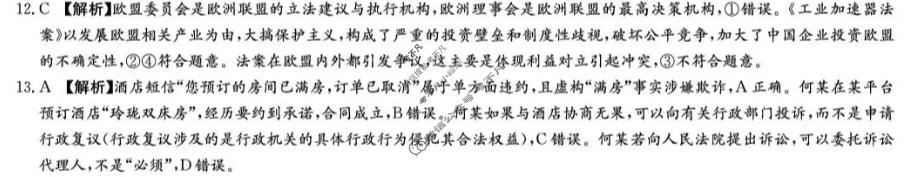 12.C 【解析】欧盟委员会是欧洲联盟的立法建议与执行机构,欧洲理事会是欧洲联盟的最高决策机构,①错误。《工业加速器法
案》以发展欧盟相关产业为由,大搞保护主义,构成了严重的投资壁垒和制度性歧视,破坏公平竞争,加大了中国企业投资欧盟
的不确定性,②④符合题意。法案在欧盟内外都引发争议,这主要是体现利益对立引起冲突,③不符合题意。
13.A 【解析】酒店短信“您预订的房间已满房,订单已取消”属于单方面违约,且虚构“满房”事实涉嫌欺诈,A正确。何某在某平台
预订酒店“玲珑双床房”,经历要约到承诺,合同成立,B错误。何某如果与酒店协商无果,可以向有关行政部门投诉,而不是申请
行政复议(行政复议涉及的是行政机关的具体行政行为侵犯其合法权益),C错误。何某若向人民法院提出诉讼,可以委托诉讼
代理人,不是“必须”,D错误。